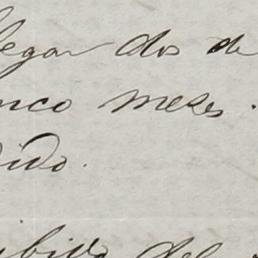 llegar dos de
nco meses.
dido.
cibivo del